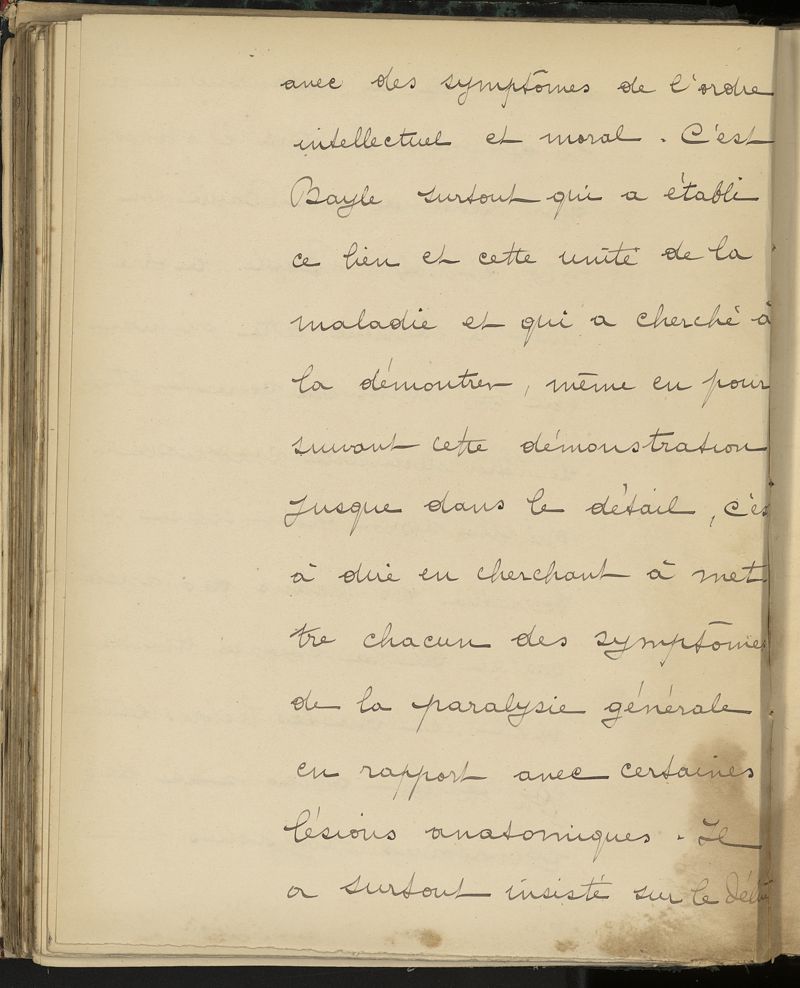 avec des symptômes de l'ordre
intellectuel et moral. C'est
Bayle surtout qui a établi
ce lien et cette unité de la
maladie et qui a cherché à
la démontrer, même en pour
suivant cette démonstration
jusque dans le détail, c'es
à dire en cherchant à met
tre chacun des symptômes
de la paralysie générale
en rapport avec certaines
lésions anatomiques. Il
a surtout insisté sur le